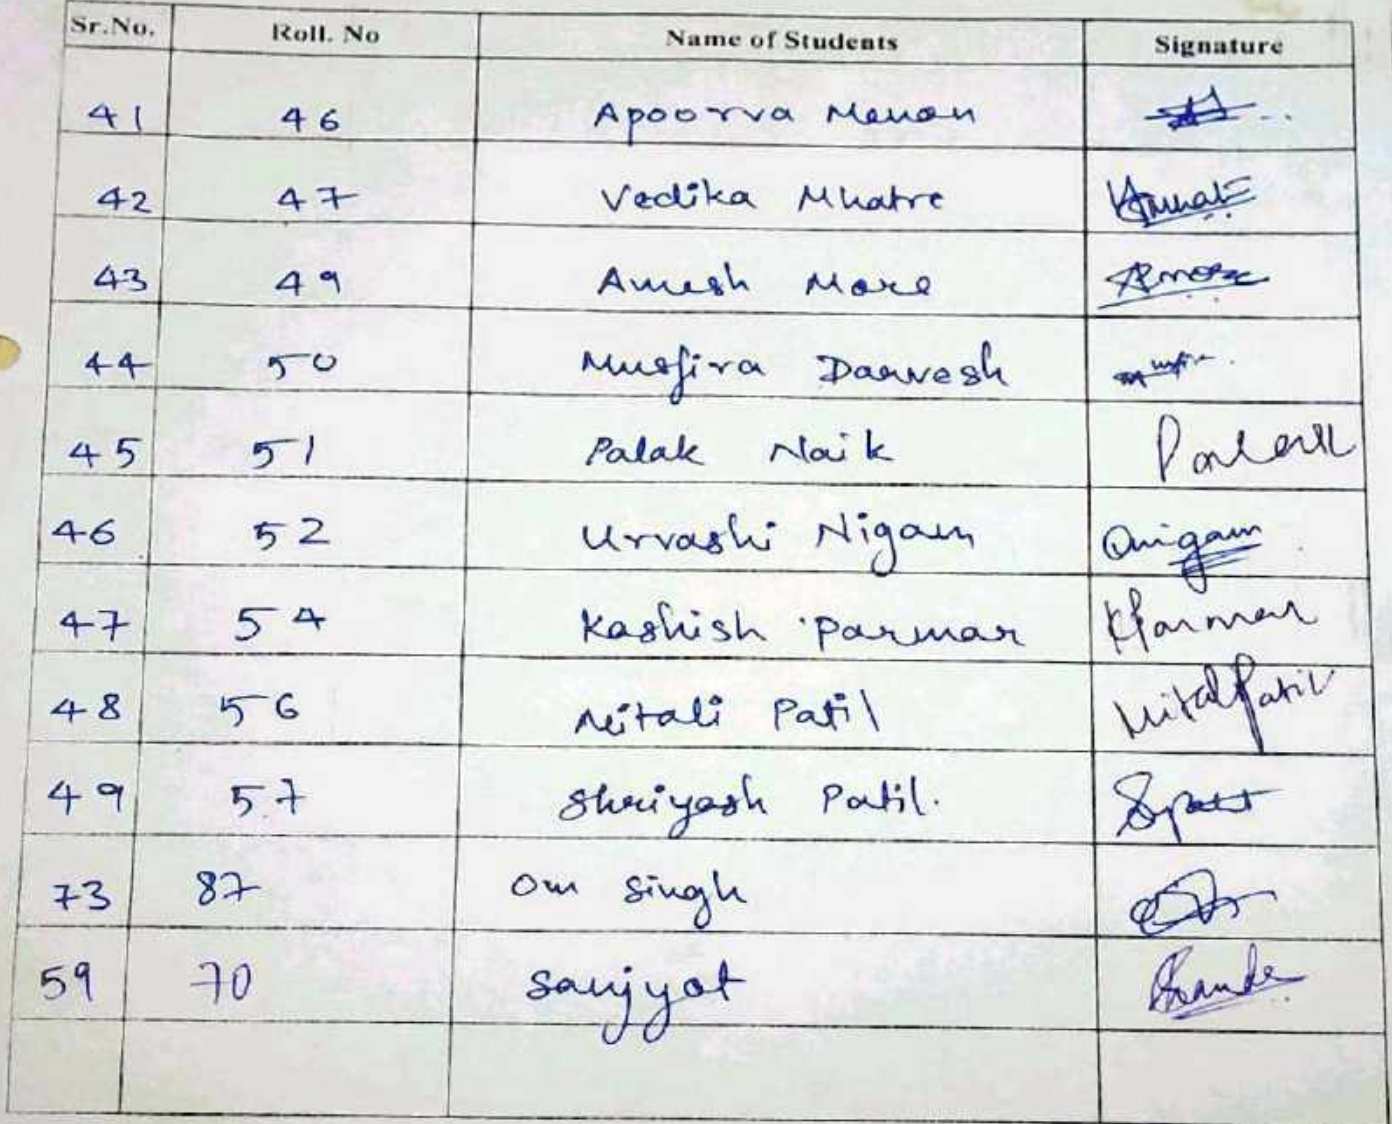 Sr.No. Roll. No Name of Students Signature
41 46 Apoorva Menon
42 47 Vedika Mhatre
43 49 More
44 50 Darvesh
45 51 Palak Naik Palak
46 52 Urvashi Nigam
47 54 Kashish Parmar KParmar
48 56 Mitali Patil
49 57 Shriyash Patil.
73 87 Om Singh
59 70 Sanjyot